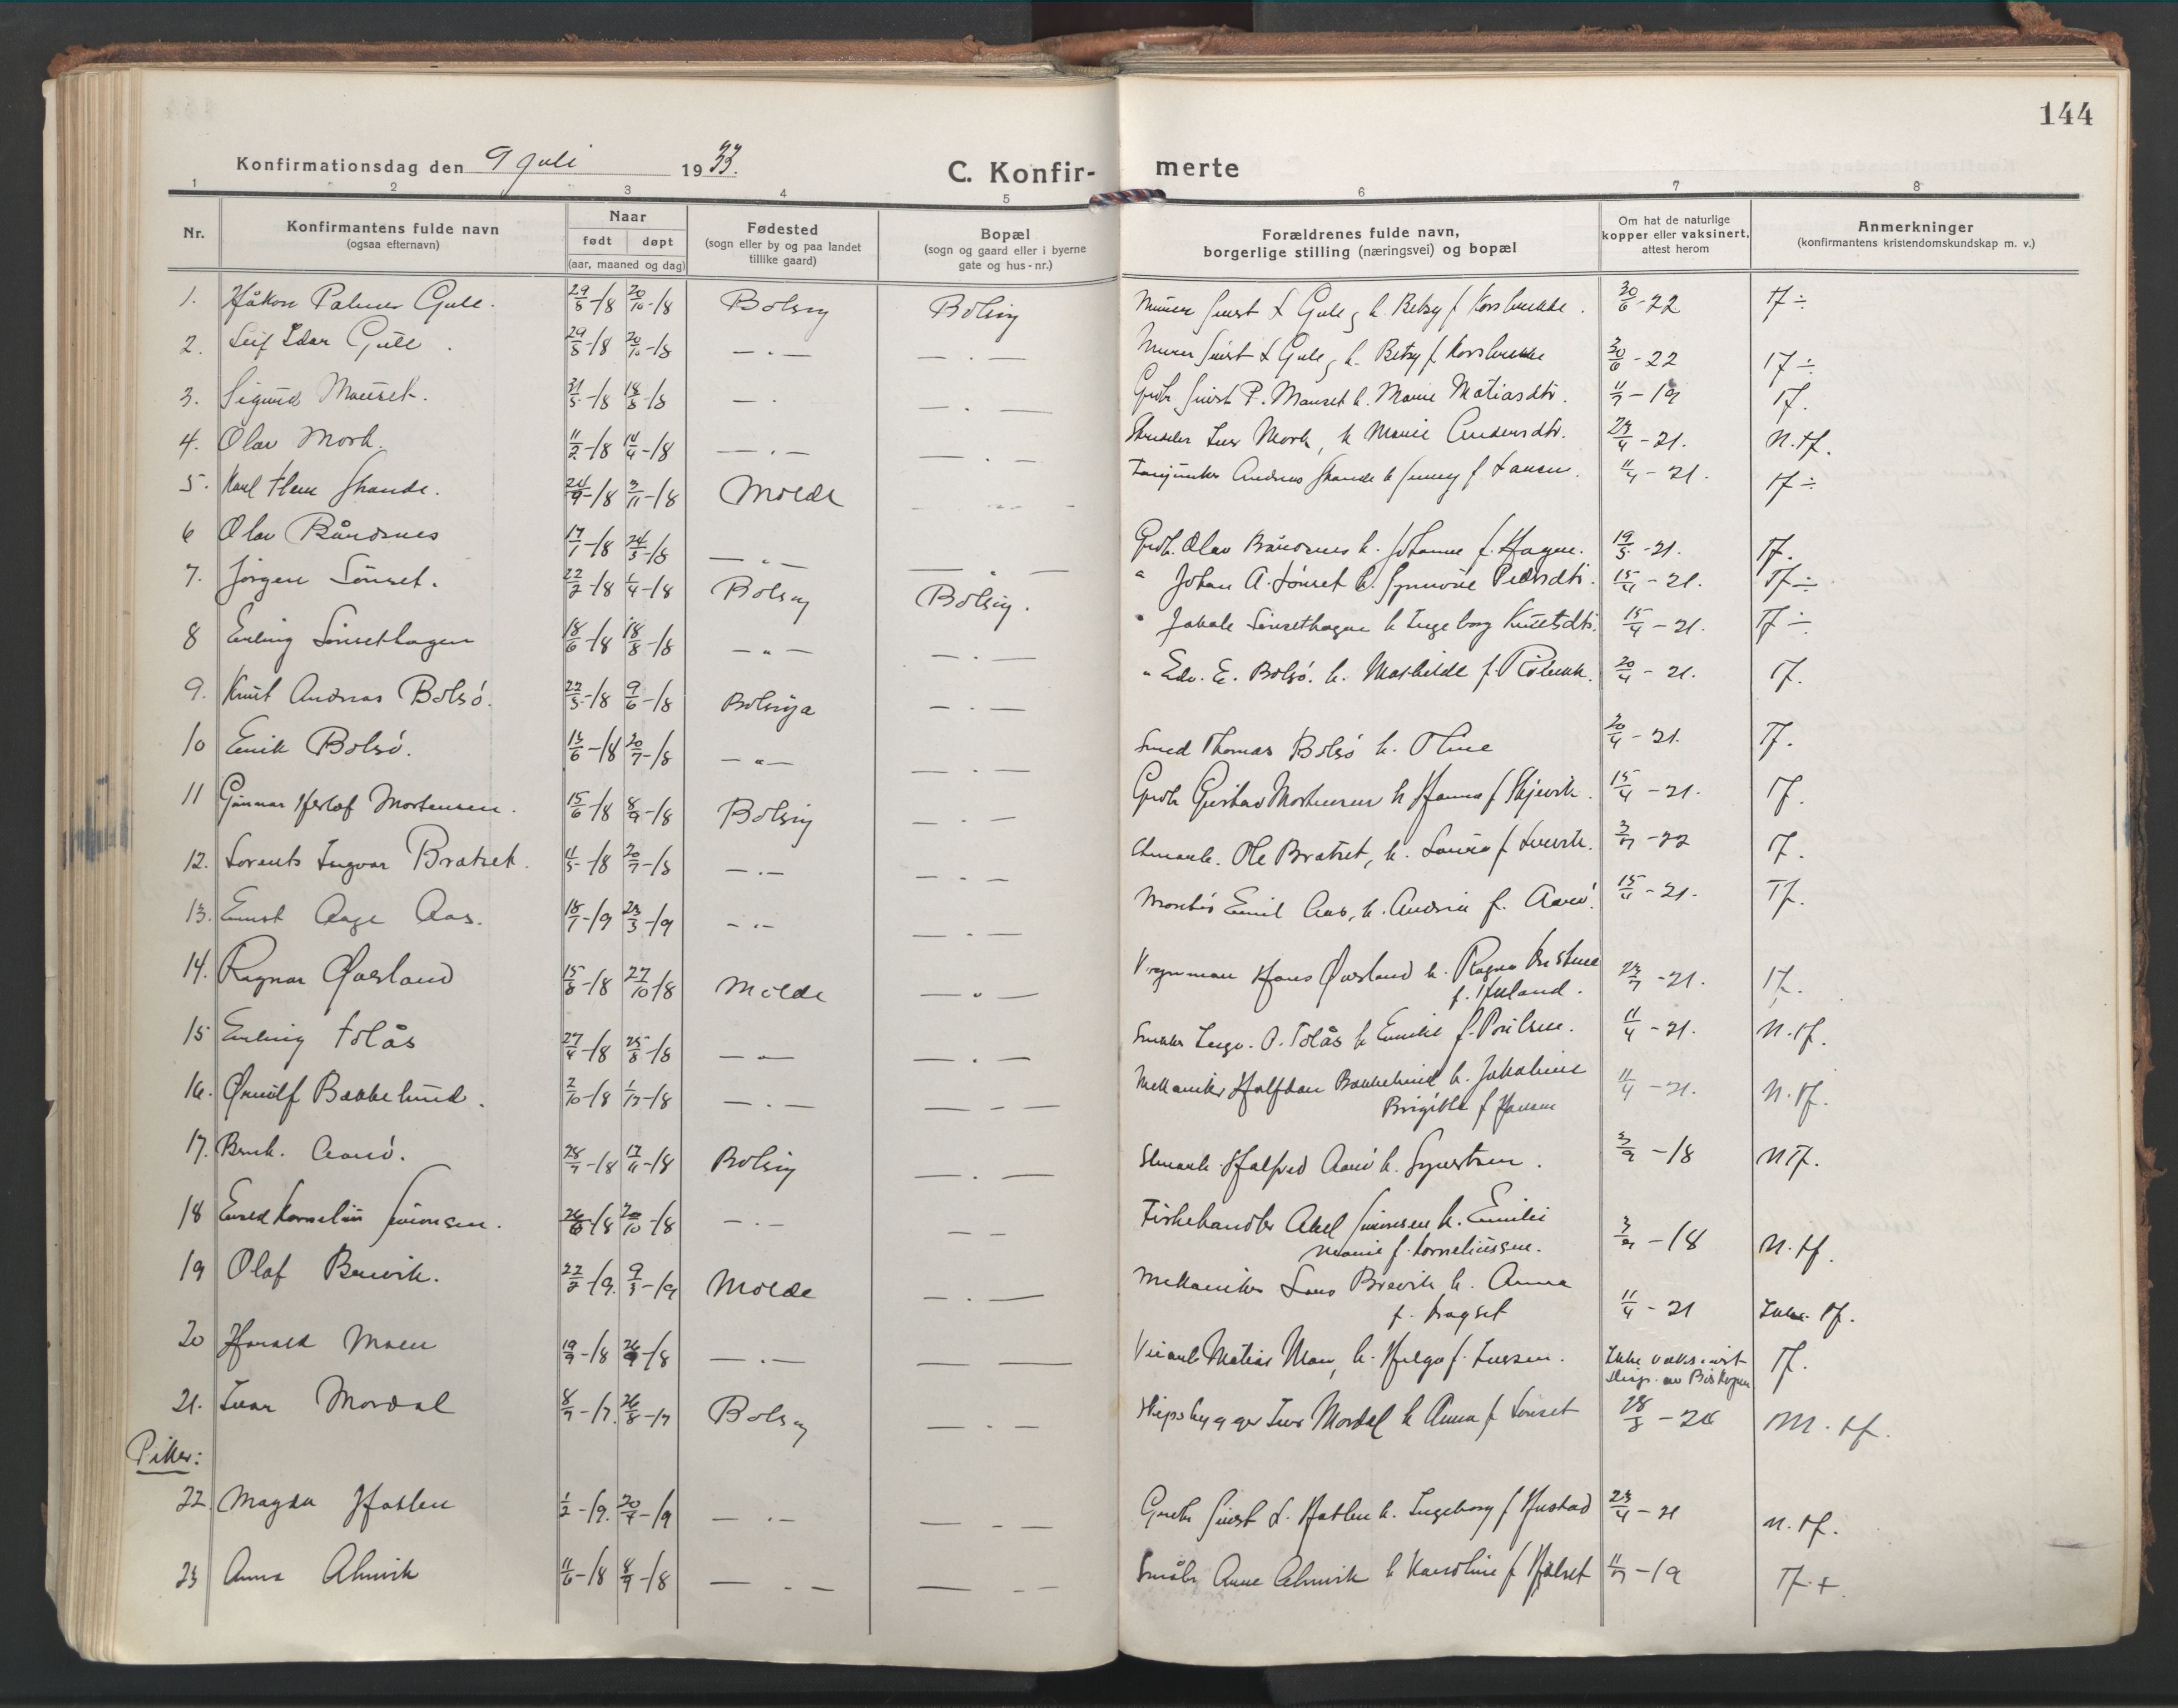 144
Konfirmationsdag den 9 juli 1933. C. Konfir- merte
1 2 3 4 5 6 7 8
Nr. Konfirmantens fulde navn (ogsaa efternavn) Naar født døpt (aar, maaned og dag) Fødested (sogn eller by og paa landet tillike gaard) Bopæl (sogn og gaard eller i byerne gate og hus-nr.) Forældrenes fulde navn, borgerlige stilling (næringsvei) og bopæl Om hat de naturlige kopper eller vaksinert, attest herom Anmerkninger (konfirmantens kristendomskundskap m. v.)
1. Håkon Palmer Gule. 29/8-18 20/10-18 Bolsøy Bolsøy Murer L Gule, h. Betsy f. 30/6-22 Tf ÷
2. Leif Idar Gule. 29/8-18 20/10-18 —.— —.— Murer L Gule, h. Betsy f. 30/6-22 Tf ÷
3. Sigurd Mauset. 31/5-18 18/8-18 —. —.— Gbr. P. Mauset h. Marie Matiasdtr. 11/7-19 Tf.
4. Olav Mork. 11/2-18 14/4-18 —.— —.— Iver Mork, h. Marie Andersdtr. 23/4-21. N.tf.
5. Karl Hem Strande. 24/9-18 3/11-18 Molde Andreas Strande h Jenny f Larsen. 11/4-21. Tf ÷
6 Olav Bårdsnes 17/1-18 24/3-18 —.— —.— Gbr. Olav Bårdsnes h. Johanne f. Hagen. 19/5-21. Tf.
7. Jørgen Sønset. 22/2-18 1/4-18 Bolsøy Bolsøy. " Johan A. Sønset h. Synnøve Pedersdtr. 15/4-21. Tf ÷
8 Erling Sønsethagen 18/6-18 18/8-18 —"— —.— " Jakob Sønsethagen h Ingeborg Knutsdtr. 15/4-21. Tf ÷
9. Knut Andreas Bolsø. 22/5-18 9/6-18 Bolsøya —.— " Edv. E. Bolsø. h. Mathilde f. 20/4-21. Tf.
10 Eirik Bolsø. 13/6-18 20/7-18 —"— —.— Smed Thomas Bolsø h. Oline 20/4-21. Tf.
11 Gunnar Herlof Mortensen. 15/6-18 8/9-18 Bolsøy —.— Gbr Gustav Mortensen h Hanna f Skjevik. 15/4-21. Tf.
12. Lorents Ingvar Bratset. 11/5-18 20/7-18 —.— —.— Ole Bratset, h. Laura f 3/7-22 Tf.
13. Ernst Aage Aas. 18/1-19 23/3-19 —.— —.— Emil Aas, h. Andrea f. Aarø. 15/4-21. Tf.
14. Ragnar Øverland 15/8-18 27/10-18 Molde —"— Vognmann Hans Øverland h. Ragna Kristine 23/7-21. Tf.
f. Hilland.
15 Erling Tolås 27/4-18 25/8-18 —"— —.— O. Tolås h Emilie f. Poulsen. 11/4-21. N.tf.
16. Ørnulf Bakkelund. 2/10-18 1/12-18 —.— —.— Mekaniker Halfdan Bakkelund h. Jakobine 11/4-21. N.tf.
Birgitte f Hansen
17. Bernh. Aarø. 28/7-18 17/11-18 Bolsøy —.— Halfred Aarø h. 3/9-18 N Tf.
18 Kornelius Simonsen. 26/8-18 20/10-18 —.— — — Fiskehandler Aksel Simonsen h. Emilie 3/9-18 N.tf.
Marie f. Korneliussen.
19 Olaf Brevik. 22/2-19. 9/3-19 Molde —.— Mekaniker Lars Brevik h. Anna 11/4-21 tf.
f.
20 Harald Moen 19/9-18 —.— — — Matias Moen, h. Helga f. Iversen. Ikke vaksinert Tf.
disp. av Biskopen
21. Ivar Mordal 8/7-17. 26/8-17 Bolsøy —.— Skipsbygger Iver Mordal h Anna f Sønset 28/8-28 M.tf.
Piker:
22. Magda Hatlen 1/2-19. 20/4-19 —.— —.— Gbr L. Hatlen h. Ingeborg f Hustad 23/4-21 N.tf.
23 Anna Almvik 11/6-18 8/9-18 —.— —.— Arne Almvik h Karoline f Hjelset 11/7-19 Tf +